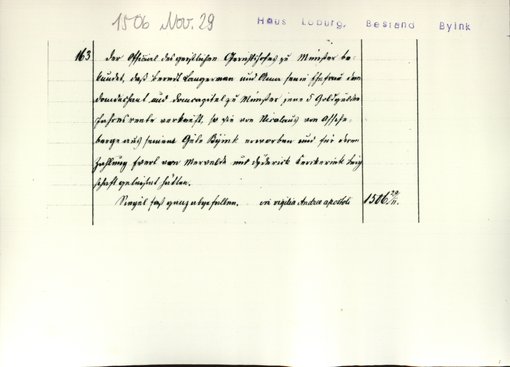 1506 Nov. 29
Haus Loburg, Bestand Byink
163
Der Official des geistlichen Gerichtshofes zu Münster be-
kundet, daß Berndt Langerman und Anna seine Ehefrau dem
Domdechant und Domcapitel zu Münster jene 5 Goldgulden
Jahresrente verkauft, so sie von Nicolaus von Assche-
berge aus seinem Gute Byink erworben und für deren
Zahlung Evert von Mervelde und Dyderick Kerkerink Bürg-
schaft geleistet hätten.
Siegel fast ganz abgefallen. in vigilia Andree apostoli 1506 29/11.